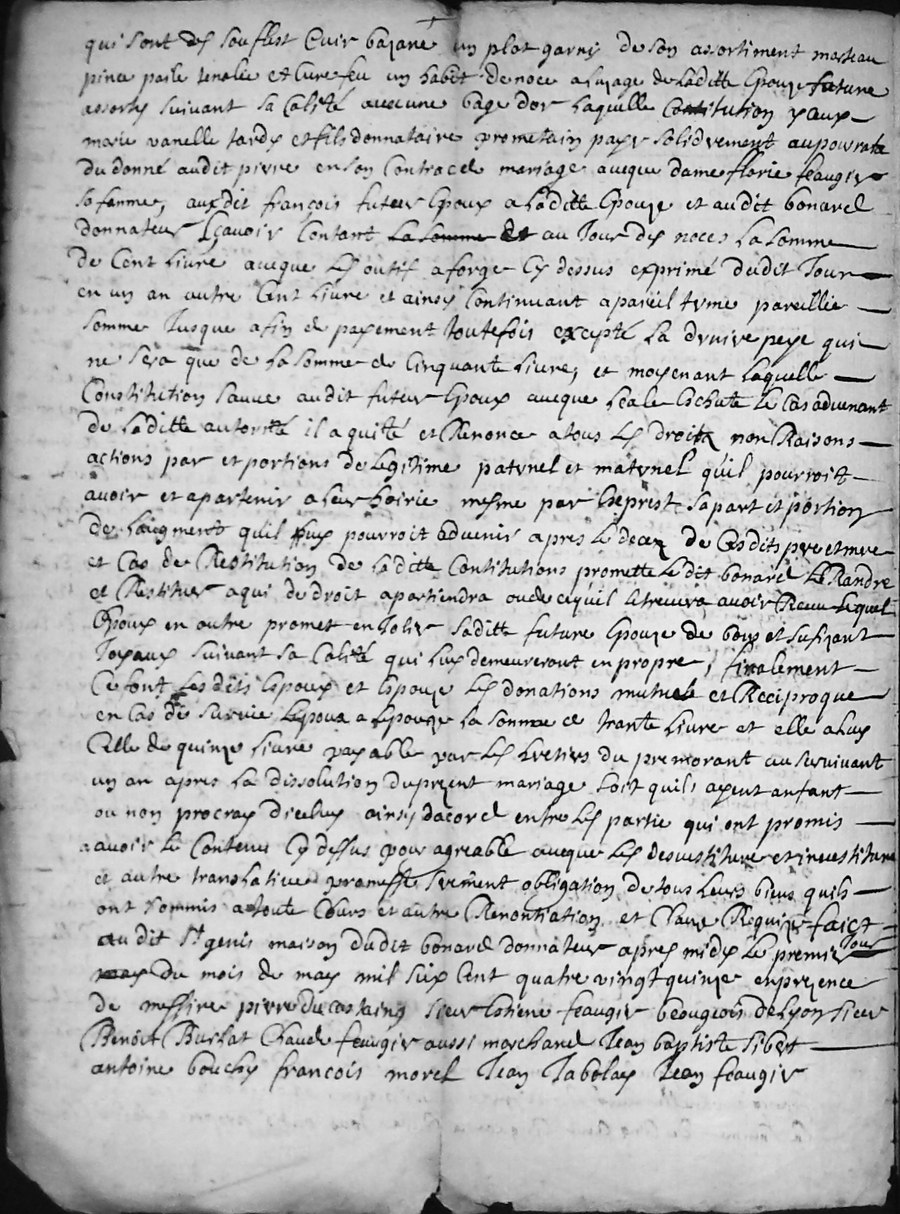 qui sont des soufflest Cuir bajané un plat garny de son assortiment marteau
pince paile tenalie et Cure feu un habit de noce a lusage de laditte Epouze future
assorty suivant sa Calité avec une bage dor laquelle Constitution yaux
marie vanelle tardy et fils donnataire prometain payer solidrement au pourata
du donné audit pierre en son Contract de mariage aveque dame florie feaugier
sa femme, auxdit françois futeur Epoux a laditte Epouze et audit bonard
donnateur Sçavoir Contant la somme de au Jour des noces la somme
de Cent livre aveque les outif a forge Cy dessus exprimé dudit Jour
en un an autre Cent livre et ainsy Continuant a pareil tyme pareillie
somme Jusque a fin de payement toutefois excepté la dreniere peye qui
ne sera que de la somme de Cinquante livre, et moyenant laquelle
Constitution sauve audit futeur Epoux aveque leale Echute le Cas advenant
de laditte autorité il a quité et Renonce a tous les droits non Raisons
actions par et portions de legitime paternel et maternel quil pourroit
avoir et apartenir a leur hoirie mesme par Exprest sa part et portion
de laugment quil luy pourroit advenir apres le decez de Cesdits pere et mere
et Cas de Restitution de laditte Contitutions promette ledit bonard le Randre
et Restituer a qui de droit apartiendra oudece quil se treuvera avoir Receu lequel
Epoux en outre promet en Jolier saditte future Epouze de bons et sufizant
Joyaux suivant sa Calité qui luy demeureront en propre, finalement
Ce font lesdits Epoux et Epouze les donations mutuele et Reciproque
en Cas de survie lepoux a lepouze la somme de trante livre et elle a luy
Celle de quinze livre payable par les heretiers du premorant au survivant
un an apres la dissolution du prezent mariage soit quils ayent anfant
ou non procray dicelluy ainsy dacord entre les partie qui ont promis
avoir le Contenu Cy dessus pour agreable aveque les desvestiture et investiture
et autre translative promesse serement obligation de tous leurs biens quils
ont sommis a toute Cours et autre Renontiation et Clauze Requize faict
audit st genis maison dudit bonard donnateur apres midy le premier Jour
du mois de may mil six Cent quatre vingt quinze en prezence
de messire pierre ducastaing sieur Estiene feaugier beougeois de Lyon sieur
Benoit Burlat Claude feaugier aussi marchand Jean baptiste sibert
antoine bouchy françois morel Jean Jabolay Jean feaugier